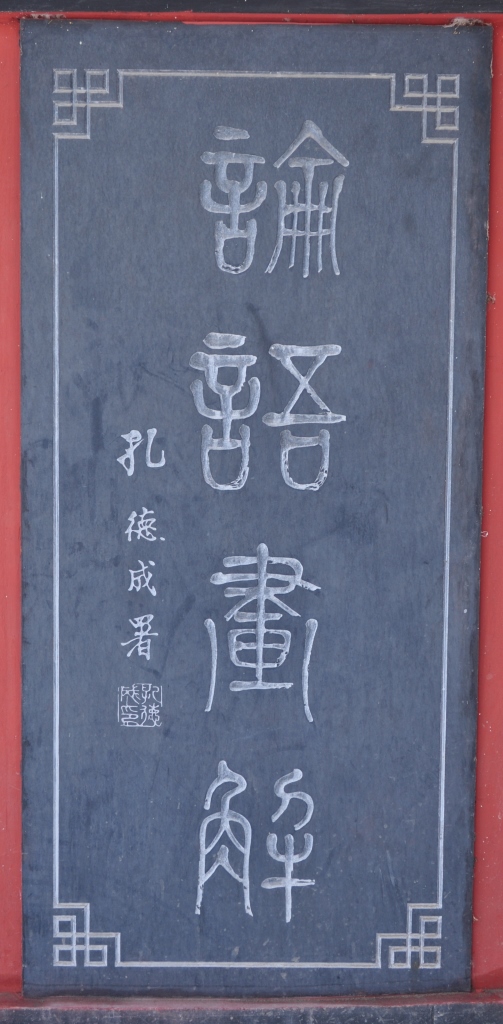 論語畫解
孔德成署
孔德成印